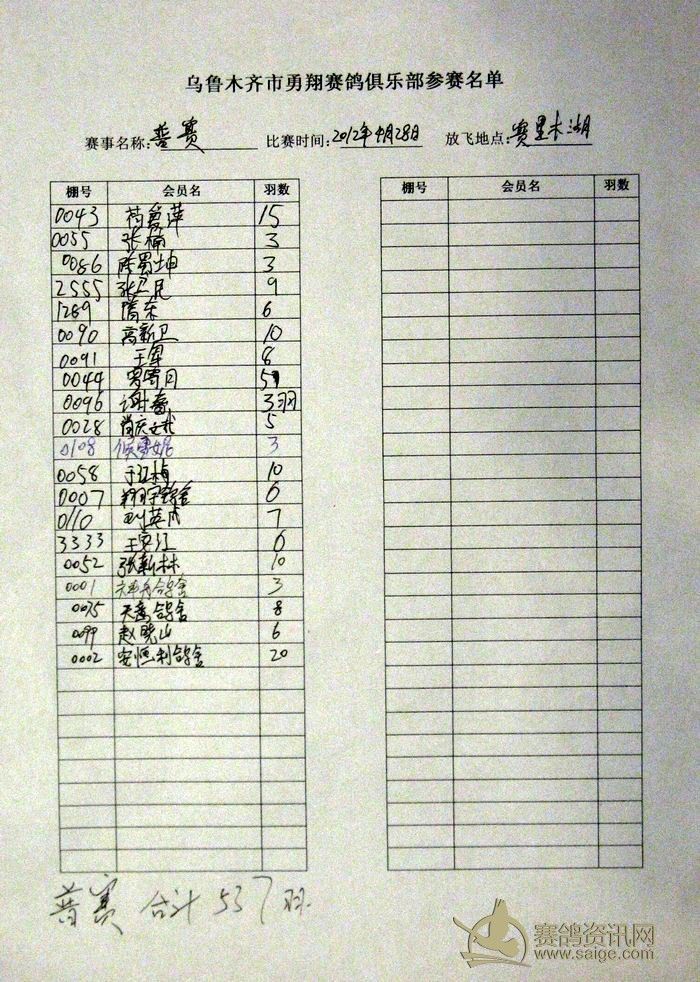 乌鲁木齐市勇翔赛鸽俱乐部参赛名单
赛事名称:普赛 比赛时间:2012年4月28日 放飞地点:赛里木湖
棚号 会员名 羽数 棚号 会员名 羽数
0043 苟爱萍 15
0055 张楠 3
0086 陈蜀坤 3
2555 张卫民 9
1289 隋东 6
0090 高新卫 10
0091 王军 8
0044
0096 谢春 3羽
0028 肖庆 5
0108 3
0058 于江梅 10
0007 翔宇鸽舍 6
0110 刘英成 7
3333 王家江 6
0052 张新林 10
0001 鸽舍 3
0075 天禽鸽舍 8
0099 赵晓山 6
0002 安恒利鸽舍 20
普赛 合计 537羽
赛鸽资讯网
www.saige.com